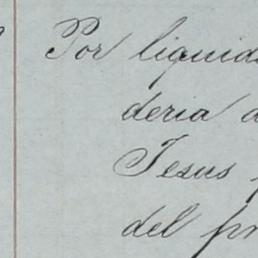 Por liquida
deria d
Jesus
del pr